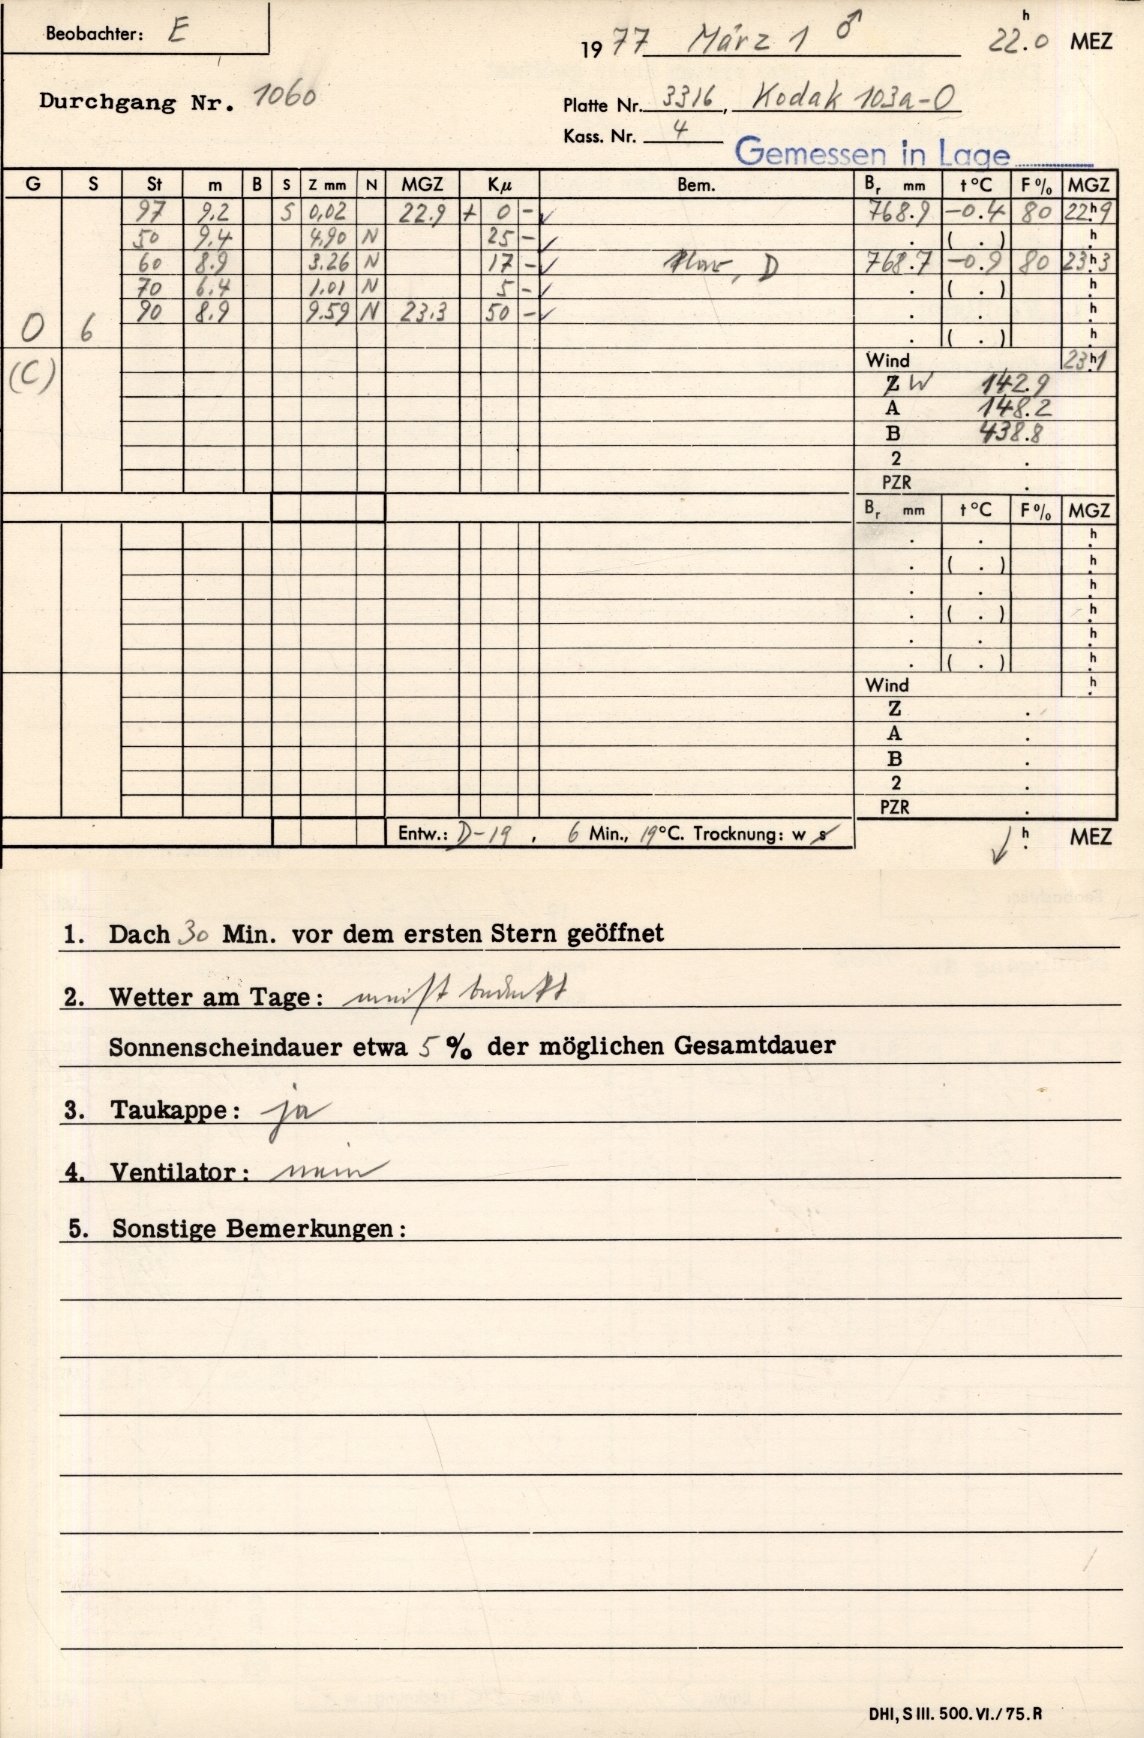 Beobachter: E
1977 März 1 ♂ 22.0 h MEZ
Durchgang Nr. 1060
Platte Nr. 3316, Kodak 103a-O
Kass. Nr. 4
Gemessen in Lage
G S St m B S Z mm N MGZ Kμ Bem. Br mm t °C F % MGZ
97 9.2 S 0,02 22.9 + 0 - ✓ 768.9 -0.4 80 22h9
50 9.4 4.90 N 25 - ✓ . ( . ) h
60 8.9 3.26 N 17 - ✓ klar, D 768.7 -0.9 80 23h3
70 6.4 1.01 N 5 - ✓ . ( . ) h
90 8.9 9.59 N 23.3 50 - ✓ . . h
O 6 . ( . ) h
(C) Wind 23h1
Z W 142.9
A 148.2
B 438.8
2 .
PZR .
Br mm t °C F % MGZ
. . h
. ( . ) h
. . h
. ( . ) h
. . h
. ( . ) h
Wind h
Z .
A .
B .
2 .
PZR .
Entw.: D-19 , 6 Min., 19°C. Trocknung: w s
h MEZ
1. Dach 30 Min. vor dem ersten Stern geöffnet
2. Wetter am Tage: meist bedeckt
Sonnenscheindauer etwa 5 % der möglichen Gesamtdauer
3. Taukappe: ja
4. Ventilator: nein
5. Sonstige Bemerkungen:
DHI, S III. 500. VI./75. R